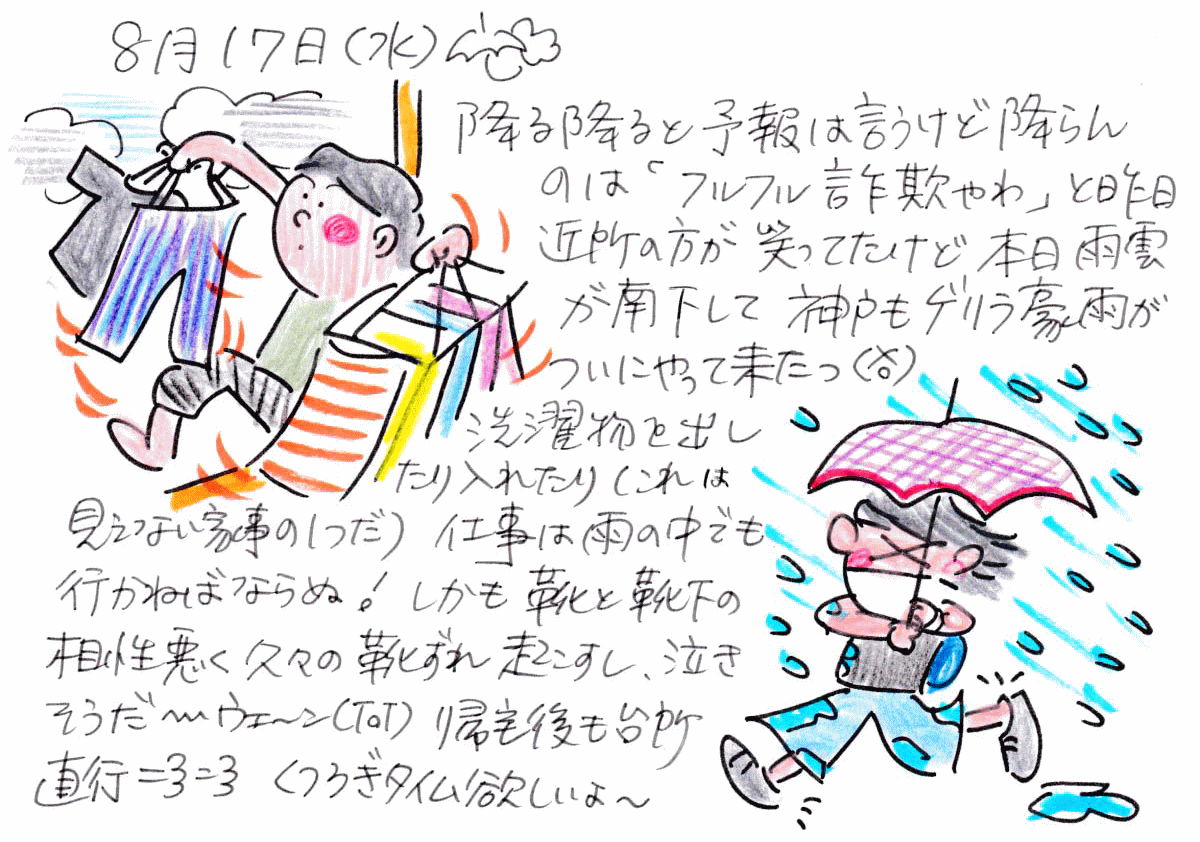 8月17日(水)
降る降ると予報は言うけど降らん
のは「フルフル詐欺やわ」と昨日
近所の方が笑ってたけど本日雨雲
が南下して神戸もゲリラ豪雨が
ついにやって来たっ
洗濯物を出し
たり入れたり(これは
見えない家事の1つだ)仕事は雨の中でも
行かねばならぬ!しかも靴と靴下の
相性悪く久々の靴ずれ起こすし、泣き
そうだ〜ウェ〜ン(ToT)帰宅後も台所
直行=3=3くつろぎタイム欲しいよ〜